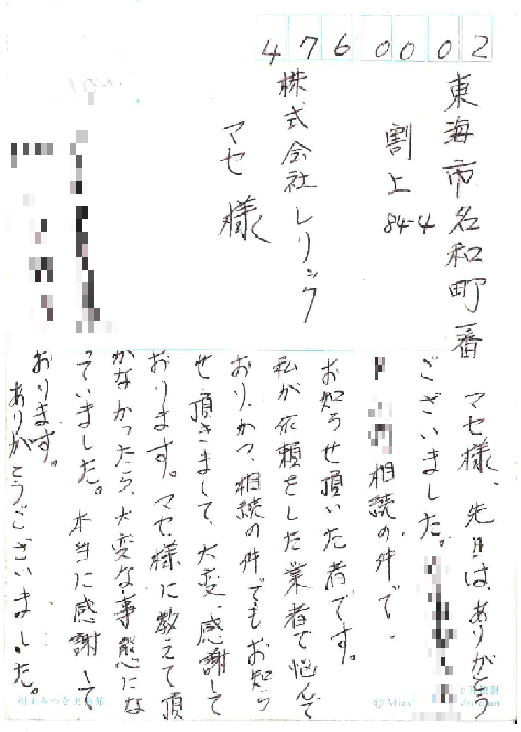 476 0002
東海市名和町一番
割上
84-4
株式会社レリック
マセ様
マセ様、先日は、ありがとう
ございました。
相続の件で、
お知らせ頂いた者です。
私が依頼をした業者で悩んで
おり、かつ、相続の件でもお知ら
せ頂きまして、大変、感謝して
おります。マセ様に教えて頂
かなかったら、大変な事態にな
っていました。本当に感謝して
おります。
ありがとうございました。